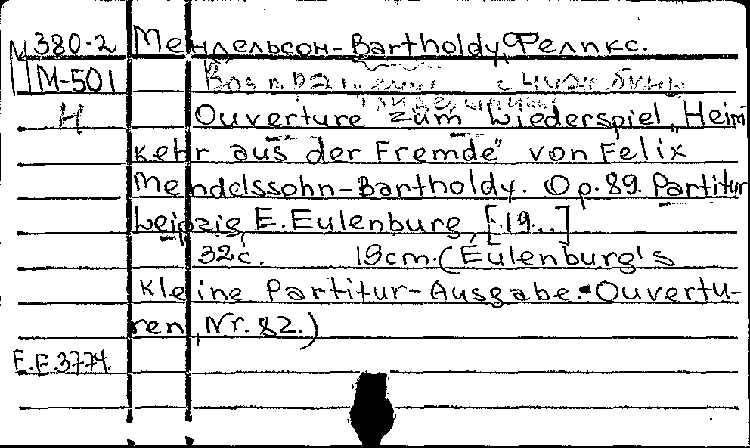 М380-2 Мендельсон-Bartholdy, Феликс.
М-501
Н Ouverture zum Liederspiel „Heim
kehr aus der Fremde" von Felix
Mendelssohn-Bartholdy. Op. 89. Partitur
Leipzig, E. Eulenburg, [19..]
32 с. 19cm. (Eulenburg's
kleine Partitur-Ausgabe. Ouvertu-
ren, Nr. 82.)
E.E.3774.